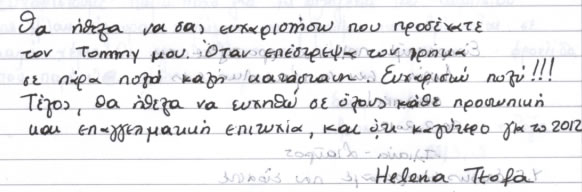 Θα ήθελα να σας ευχαριστήσω που προσέχατε
τον Tommy μου. Όταν επέστρεψα τον βρήκα
σε πάρα πολύ καλή κατάσταση. Ευχαριστώ πολύ!!!
Τέλος, θα ήθελα να ευχηθώ σε όλους κάθε προσωπική
και επαγγελματική επιτυχία, και ότι καλύτερο για το 2012
Helena Ttofa